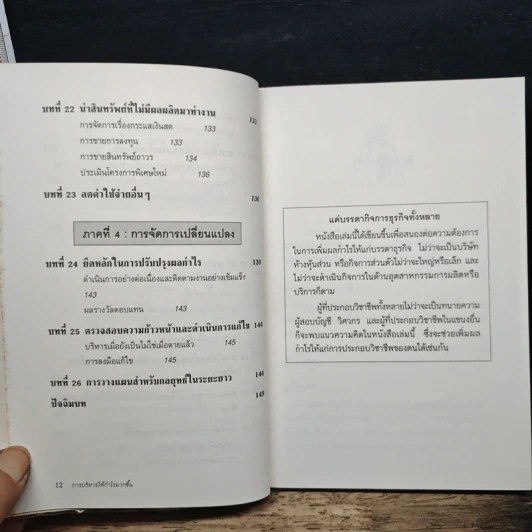 บทที่ 22 นำสินทรัพย์ที่ไม่มีผลผลิตมาทำงาน
การจัดการเรื่องกระแสเงินสด 133
การขายการลงทุน 133
การขายสินทรัพย์ถาวร 134
ประเมินโครงการพิเศษใหม่ 136
บทที่ 23 ลดค่าใช้จ่ายอื่นๆ
ภาคที่ 4 : การจัดการเปลี่ยนแปลง
บทที่ 24 ยึดหลักในการปรับปรุงผลกำไร
ดำเนินการอย่างต่อเนื่องและติดตามงานอย่างเข้มแข็ง
143
ผลรางวัลตอบแทน 143
บทที่ 25 ตรวจสอบความก้าวหน้าและดำเนินการแก้ไข 144
บริหารเมื่อยังเป็นไม่ใช่เมื่อตายแล้ว 145
การลงมือแก้ไข 145
บทที่ 26 การวางแผนสำหรับกลยุทธ์ในระยะยาว 146
ปัจฉิมบท 149
12 การบริหารให้กำไรมากขึ้น
แด่บรรดากิจการธุรกิจทั้งหลาย
หนังสือเล่มนี้ได้เขียนขึ้นเพื่อสนองต่อความต้องการ
ในการเพิ่มผลกำไรให้แก่บรรดาธุรกิจ ไม่ว่าจะเป็นบริษัท
ห้างหุ้นส่วน หรือกิจการส่วนตัวไม่ว่าจะใหญ่หรือเล็ก และ
ไม่ว่าจะดำเนินกิจการในด้านอุตสาหกรรมการผลิตหรือ
บริการก็ตาม
ผู้ที่ประกอบวิชาชีพทั้งหลายไม่ว่าจะเป็นทนายความ
ผู้สอบบัญชี วิศวกร และผู้ที่ประกอบวิชาชีพในแขนงอื่น
ก็จะพบแนวความคิดในหนังสือเล่มนี้ ซึ่งจะช่วยเพิ่มผล
กำไรให้แก่การประกอบวิชาชีพของตนได้เช่นกัน